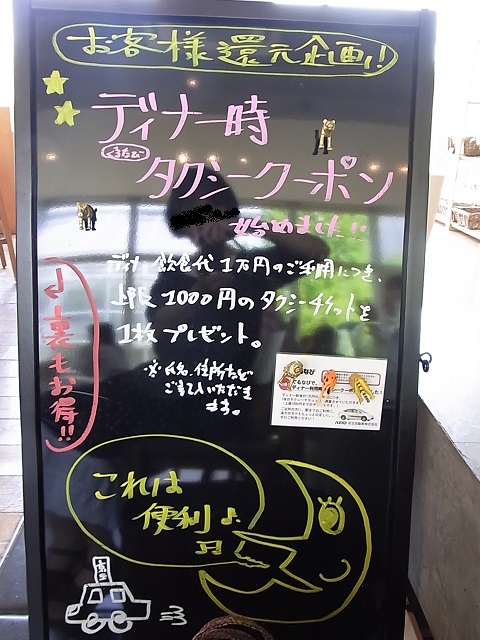 お客様還元企画!!
ディナー時
ぐるたび
タクシークーポン
始めました!!
ディナー飲食代1万円のご利用につき、
上限1000円のタクシーチケットを
1枚プレゼント。
※氏名、住所など
ご記入いただき
ます。
裏もお得!!
これは
便利♪